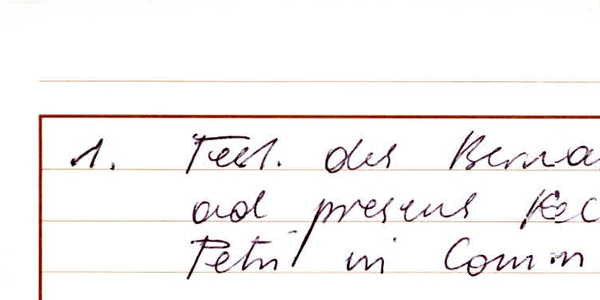 1. Test. des Berna
ad presens Rec
Petri in Comin